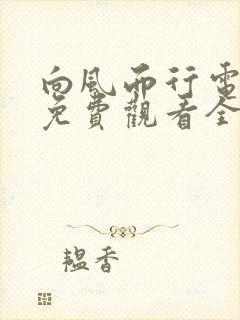 向風而行電
免費觀看全
韞香